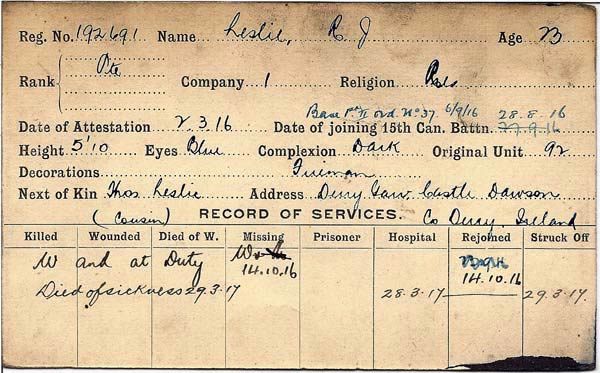 Reg. No. 192691 Name Leslie, R J Age 23
Rank Pte Company 1 Religion
Base Pt II ord. No 37. 6/9/16 28.8.16
Date of Attestation 2 3.16 Date of joining 15th Can. Battn. 27.9.16
Height 5'10 Eyes Blue Complexion Dark Original Unit 92
Decorations Fireman
Next of Kin Thos Leslie Address Derry Gaw Castle Dawson
(Cousin) RECORD OF SERVICES. Co Derry, Ireland
Killed Wounded Died of W. Missing Prisoner Hospital Rejoined Struck Off
W and at Duty 14.10.16 14.10.16
Died of sickness 29.3.17 28.3.17 29.3.17.